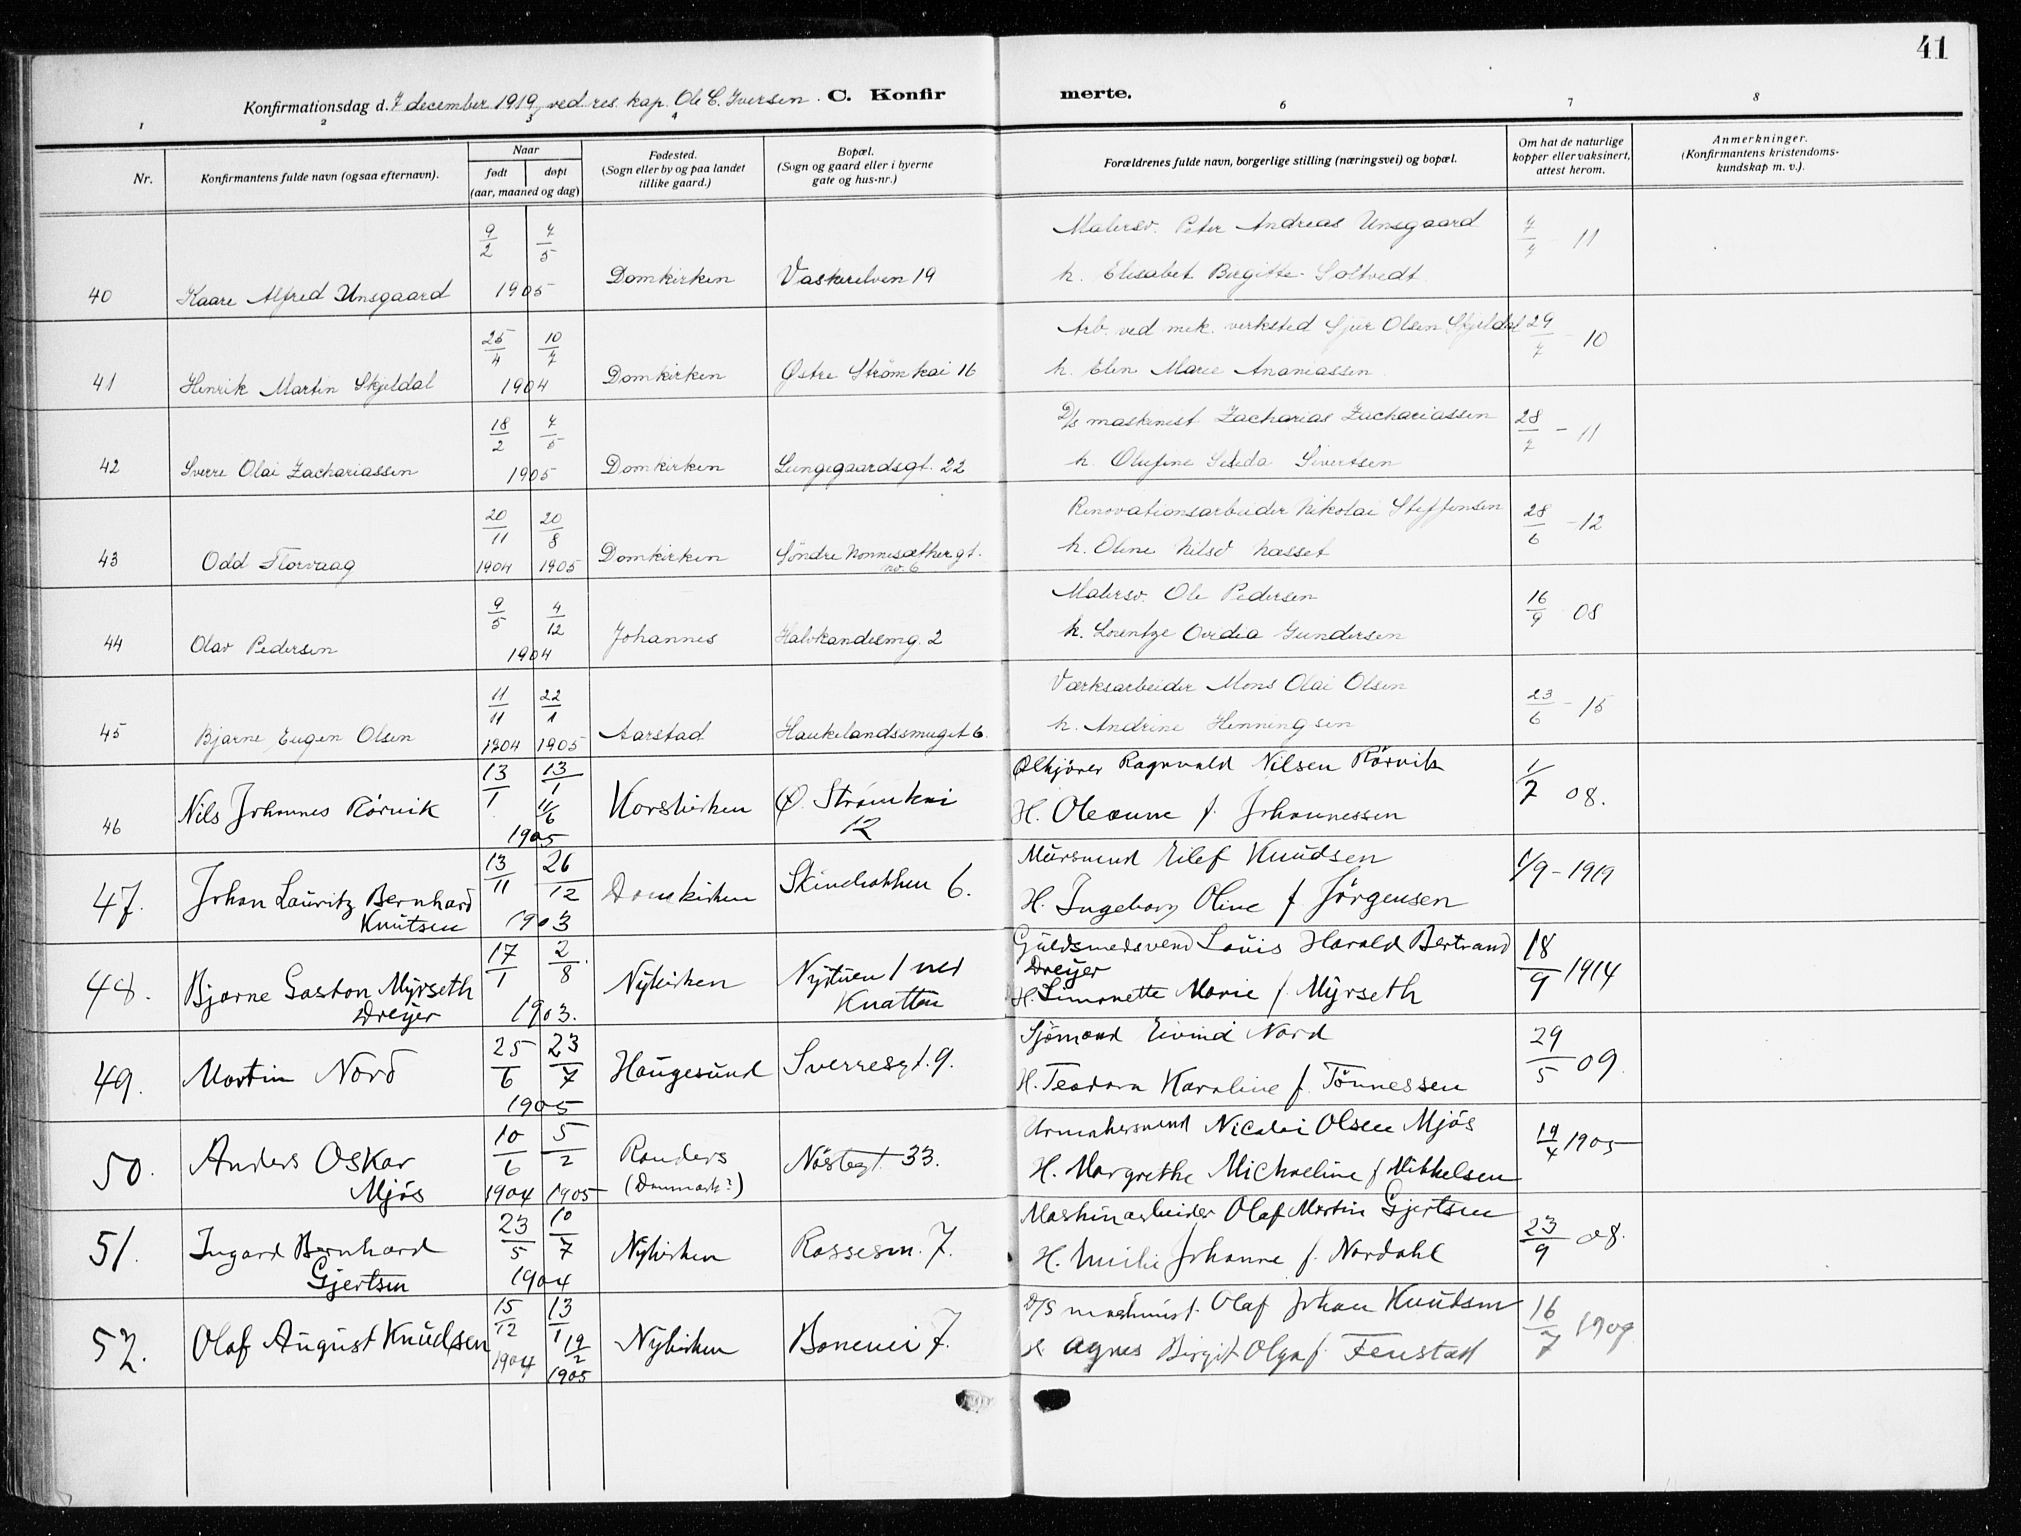 41
Konfirmationsdag d. 7 december 1919, ved res. kap. Ole C. Iversen. C. Konfirmerte.
1 2 3 4 6 7 8
Nr.
Konfirmantens fulde navn (ogsaa efternavn).
Naar
født døpt
(aar, maaned og dag)
Fødested.
(Sogn eller by og paa landet
tillike gaard.)
Bopæl.
(Sogn og gaard eller i byerne
gate og hus-nr.)
Forældrenes fulde navn, borgerlige stilling (næringsvei) og bopæl.
Om hat de naturlige
kopper eller vaksinert,
attest herom.
Anmerkninger.
(Konfirmantens kristendoms-
kundskap m. v.).
9/2 7/5 Malersv. Peter Andreas Unsgaard 7/7 - 11
40 Kaare Alfred Unsgaard 1905 Domkirken Vaskerelven 19 h. Elisabet Birgitte Soltvedt
25/4 10/7 Arb. ved mek. verksted Sjur Olsen Skjeldal 29/7 - 10
41 Henrik Martin Skjeldal 1904 Domkirken Østre Strømkai 16 h. Elen Marie Ananiassen
18/2 7/5 D/s maskinist Zacharias Zachariassen 28/7 - 11
42 Sverre Olai Zachariassen 1905 Domkirken Lungegaardsgt. 22 h. Olufine Sivertsen
20/11 20/8 Renovationsarbeider Nikolai Steffensen 28/6 - 12
43 Odd Florvaag 1904 1905 Domkirken Søndre Nonnesæthergt. h. Oline Nilsd Næsset
no. 6
9/5 4/12 Malersv. Ole Pedersen 16/9 08
44 Olav Pedersen 1904 Johannes Halvkandesmg. 2 h. Lorentze Ovidia Gundersen
11/11 22/1 Værksarbeider Mons Olai Olsen 23/6 - 15
45 Bjarne Eugen Olsen 1904 1905 Aarstad Haukelandssmuget 6. h. Andrine Henningsen
13/1 13/1 11/6 Ølkjører Ragnvald Nilsen Rörvik 1/7 08.
46 Nils Johannes Rörvik 1905 Korskirken Ø. Strømkai H. Oleanne f. Johannessen
12
13/11 26/12 Murs­vend Eilef Knudsen 1/9 - 1919
47. Johan Lauritz Bernhard Domkirken Skindrokken 6. H. Ingeborg Oline f Jörgensen
Knutsen 1903
17/1 2/8. Guldsmedsvend Louis Harald Bertrand 18/9 1914
Dreyer
48. Bjarne Gaston Myrseth Nykirken Nytuen 1 ved H. Simonette Marie f. Myrseth
Dreyer 1903. Knatten
25/6 23/7 Sjömand Eivind Nord 29/5 09
49. Martin Nord Haugesund Sverresgt. 9. H. Teodora Karoline f. Tönnessen
1905
10/6 5/2 Urmakersvend Nicolai Olsen Mjös 19/4 1905
50. Anders Oskar Randers Nöstegt. 33. H. Margrethe Michaeline f Mikkelsen
Mjös 1904 1905 (Danmark?)
23/5 10/7 Maskinarbeider Olaf Martin Gjertsen 23/9 08.
51. Ingard Bernhard Nykirken Rossesm. 7. H. Milli Johanne f. Nordahl
Gjertsen 1904
15/12 13/1 D/S maskinist. Olaf Johan Knudsen 16/7 1909
52. Olaf August Knudsen 1904 19/2 1905 Nykirken Bonevei 7. H. Agnes Birgit Olga f. Fenstad